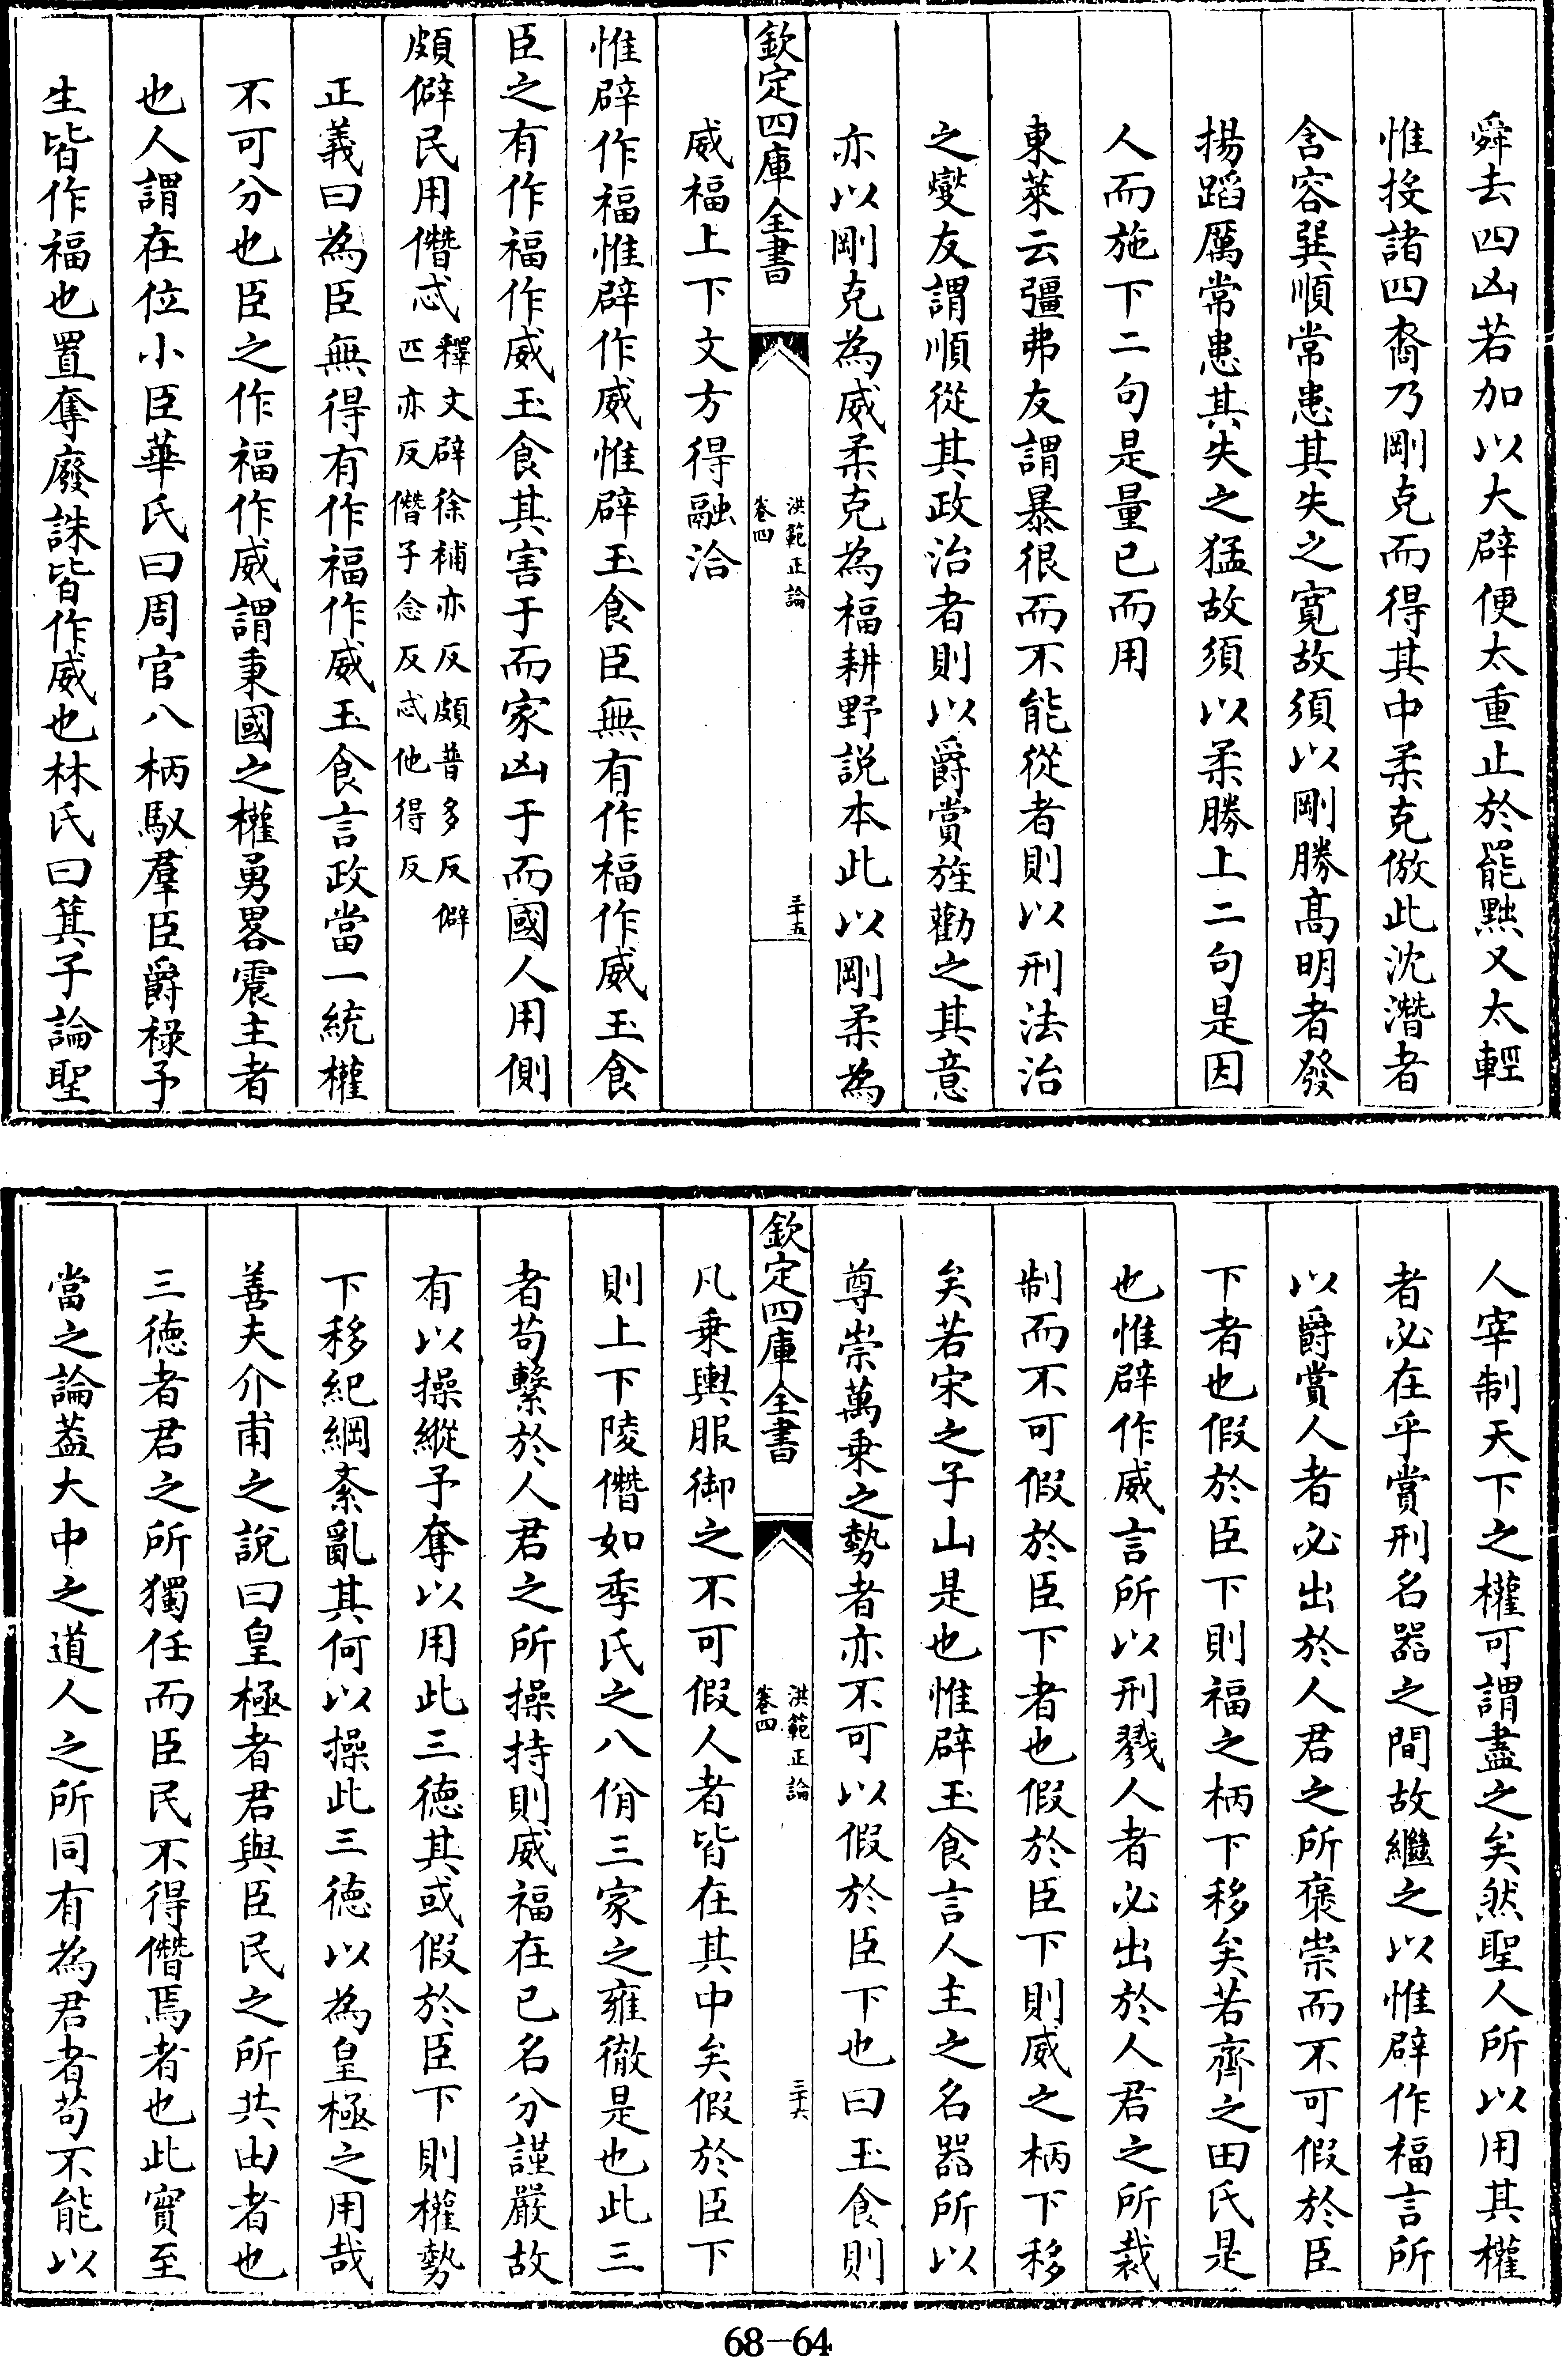 舜去四凶若加以大辟便太重止於罷黜又太輕
惟投諸四裔乃剛克而得其中柔克倣此沈潛者
含容巽順常患其失之寛故須以剛勝髙明者發
揚蹈厲常患其失之猛故須以柔勝上二句是因
人而施下二句是量已而用
東萊云彊弗友謂暴很而不能從者則以刑法治
之燮友謂順從其政治者則以爵賞旌勸之其意
亦以剛克為威柔克為福耕野説本此以剛柔為
欽定四庫全書
洪範正論
卷四
三十五
威福上下文方得融洽
惟辟作福惟辟作威惟辟玉食臣無有作福作威玉食
臣之有作福作威玉食其害于而家凶于而國人用側
頗僻民用僭忒釋文辟徐補亦反頗普多反僻
匹亦反僭子念反忒他得反
正義曰為臣無得有作福作威玉食言政當一統權
不可分也臣之作福作威謂秉國之權勇畧震主者
也人謂在位小臣華氏曰周官八柄馭羣臣爵祿予
生皆作福也置奪廢誅皆作威也林氏曰箕子論聖
人宰制天下之權可謂盡之矣然聖人所以用其權
者必在乎賞刑名器之間故繼之以惟辟作福言所
以爵賞人者必出於人君之所褒崇而不可假於臣
下者也假於臣下則福之柄下移矣若齊之田氏是
也惟辟作威言所以刑戮人者必出於人君之所裁
制而不可假於臣下者也假於臣下則威之柄下移
矣若宋之子山是也惟辟玉食言人主之名器所以
尊崇萬乗之勢者亦不可以假於臣下也曰玉食則
欽定四庫全書
洪範正論
卷四
三十六
凡乗輿服御之不可假人者皆在其中矣假於臣下
則上下陵僭如季氏之八佾三家之雍徹是也此三
者苟繫於人君之所操持則威福在已名分謹嚴故
有以操縱予奪以用此三徳其或假於臣下則權勢
下移紀綱紊亂其何以操此三徳以為皇極之用哉
善夫介甫之說曰皇極者君與臣民之所共由者也
三徳者君之所獨任而臣民不得僭焉者也此實至
當之論葢大中之道人之所同有為君者苟不能以
68-64